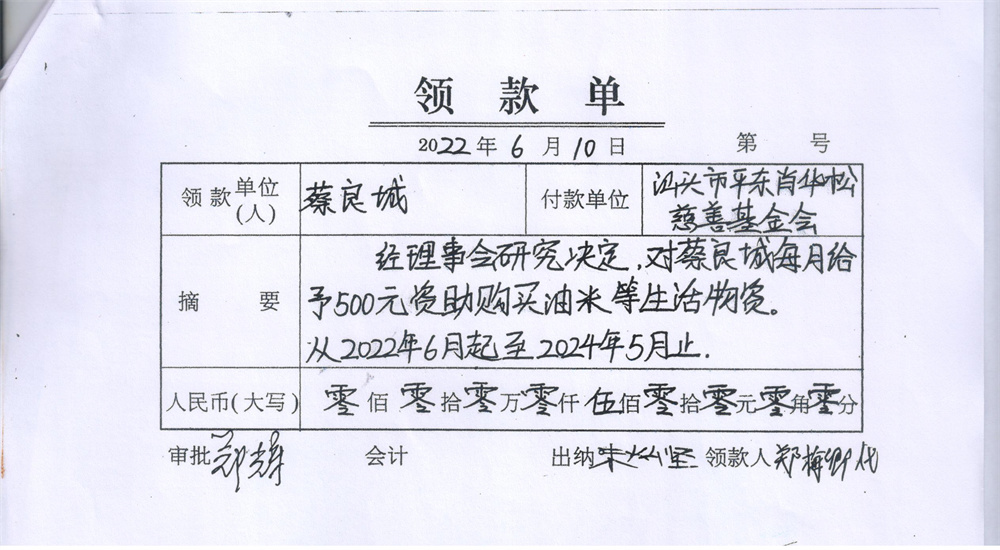 领款单
2022年6月10日 第 号
领款单位(人) 蔡良城 付款单位 汕头市平东肖华松慈善基金会
摘要 经理事会研究决定,对蔡良城每月给
予500元资助购买油米等生活物资。
从2022年6月起至2024年5月止.
人民币(大写) 零佰零拾零万零仟伍佰零拾零元零角零分
审批 郑 会计 出纳 朱 坚 领款人 郑梅卿代